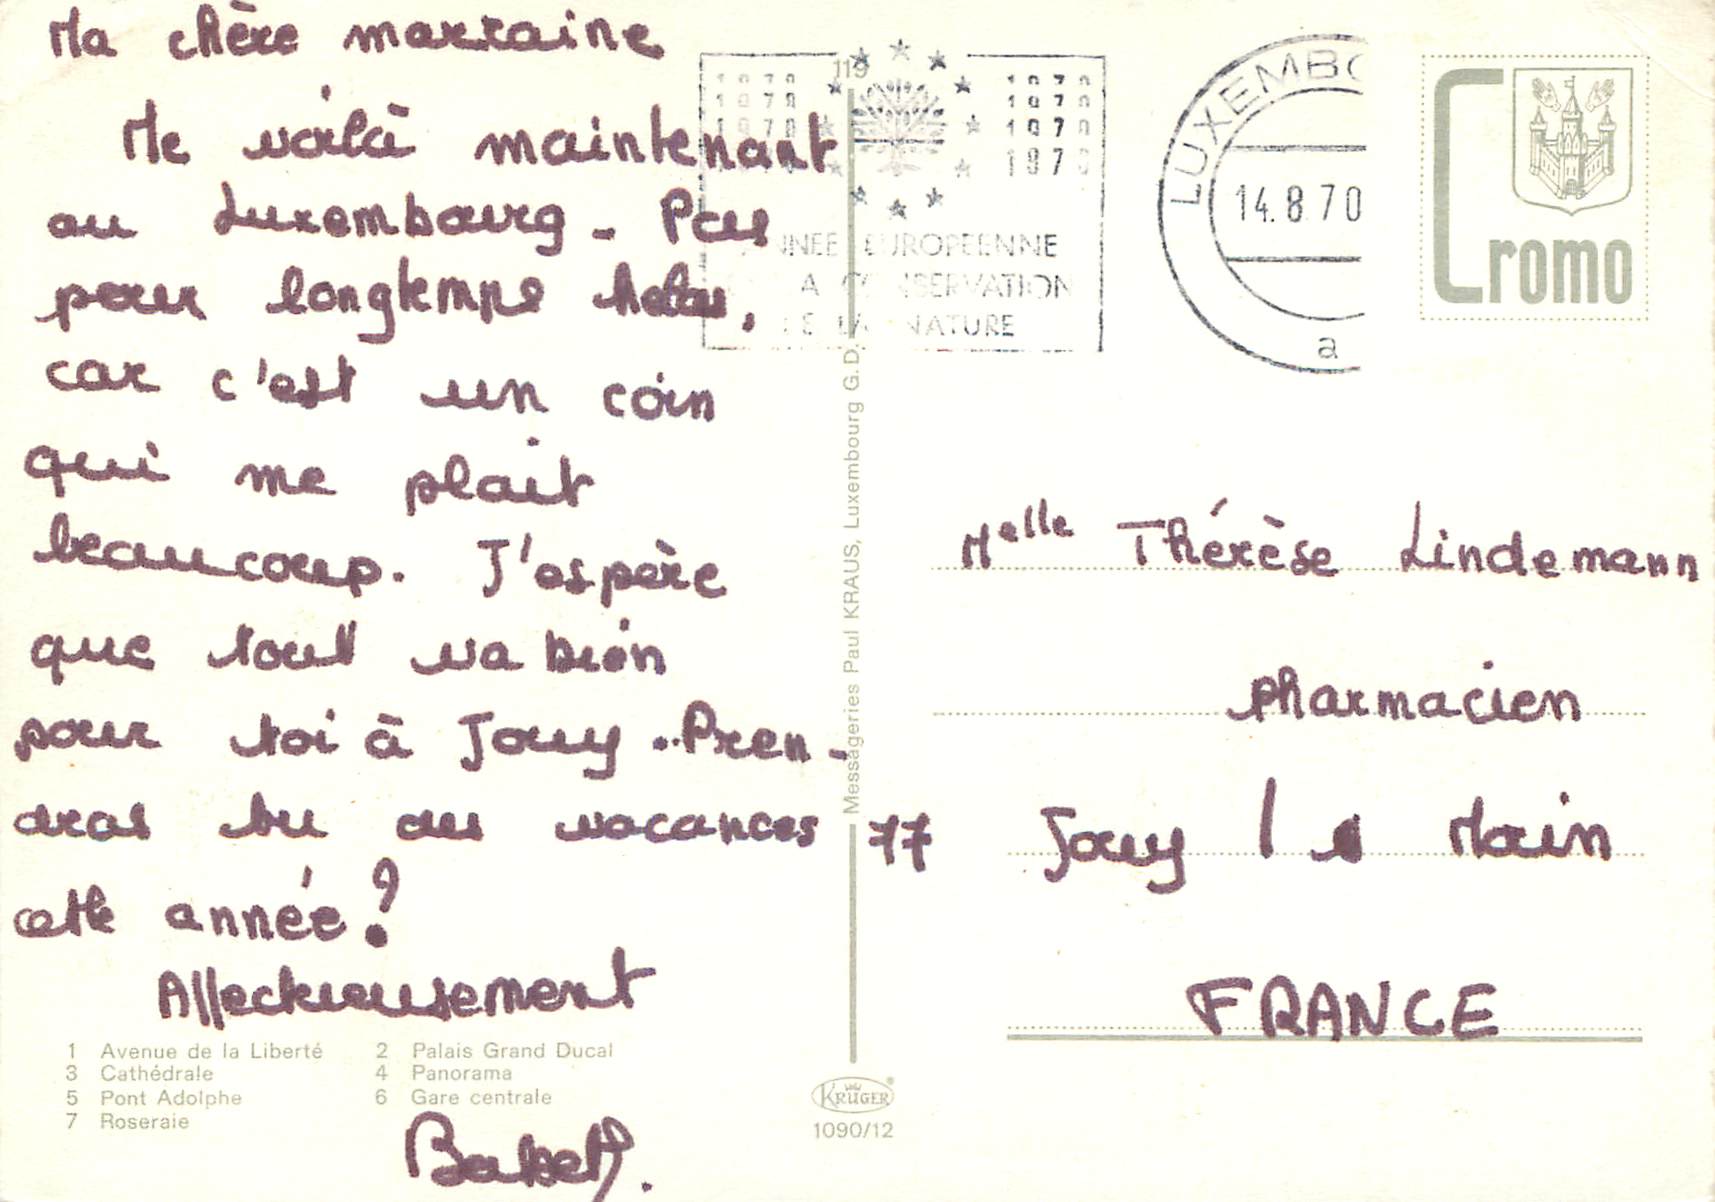 Ma chère marraine
Me voilà maintenant
au Luxembourg - Pas
pour longtemps hélas,
car c'est un coin
qui me plait
beaucoup. J'espère
que tout va bien
pour toi à Jouy. Pren-
dras tu des vacances
cette année?
Affectueusement
1 Avenue de la Liberté 2 Palais Grand Ducal
3 Cathédrale 4 Panorama
5 Pont Adolphe 6 Gare centrale
7 Roseraie
119
1970 1970
1970 1970
1970 1970
1970
ANNEE EUROPEENNE
LA CONSERVATION
DE LA NATURE
LUXEMBO
14.8.70
a
Cromo
Messageries Paul KRAUS, Luxembourg G. D.
Melle Thérèse Lindemann
pharmacien
77 Jouy le Main
FRANCE
KRÜGER
1090/12